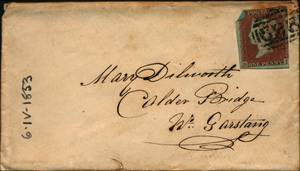 Mary Dilworth
Calder Bridge
Nr. Garstang
6·IV·1853
ONE PENNY